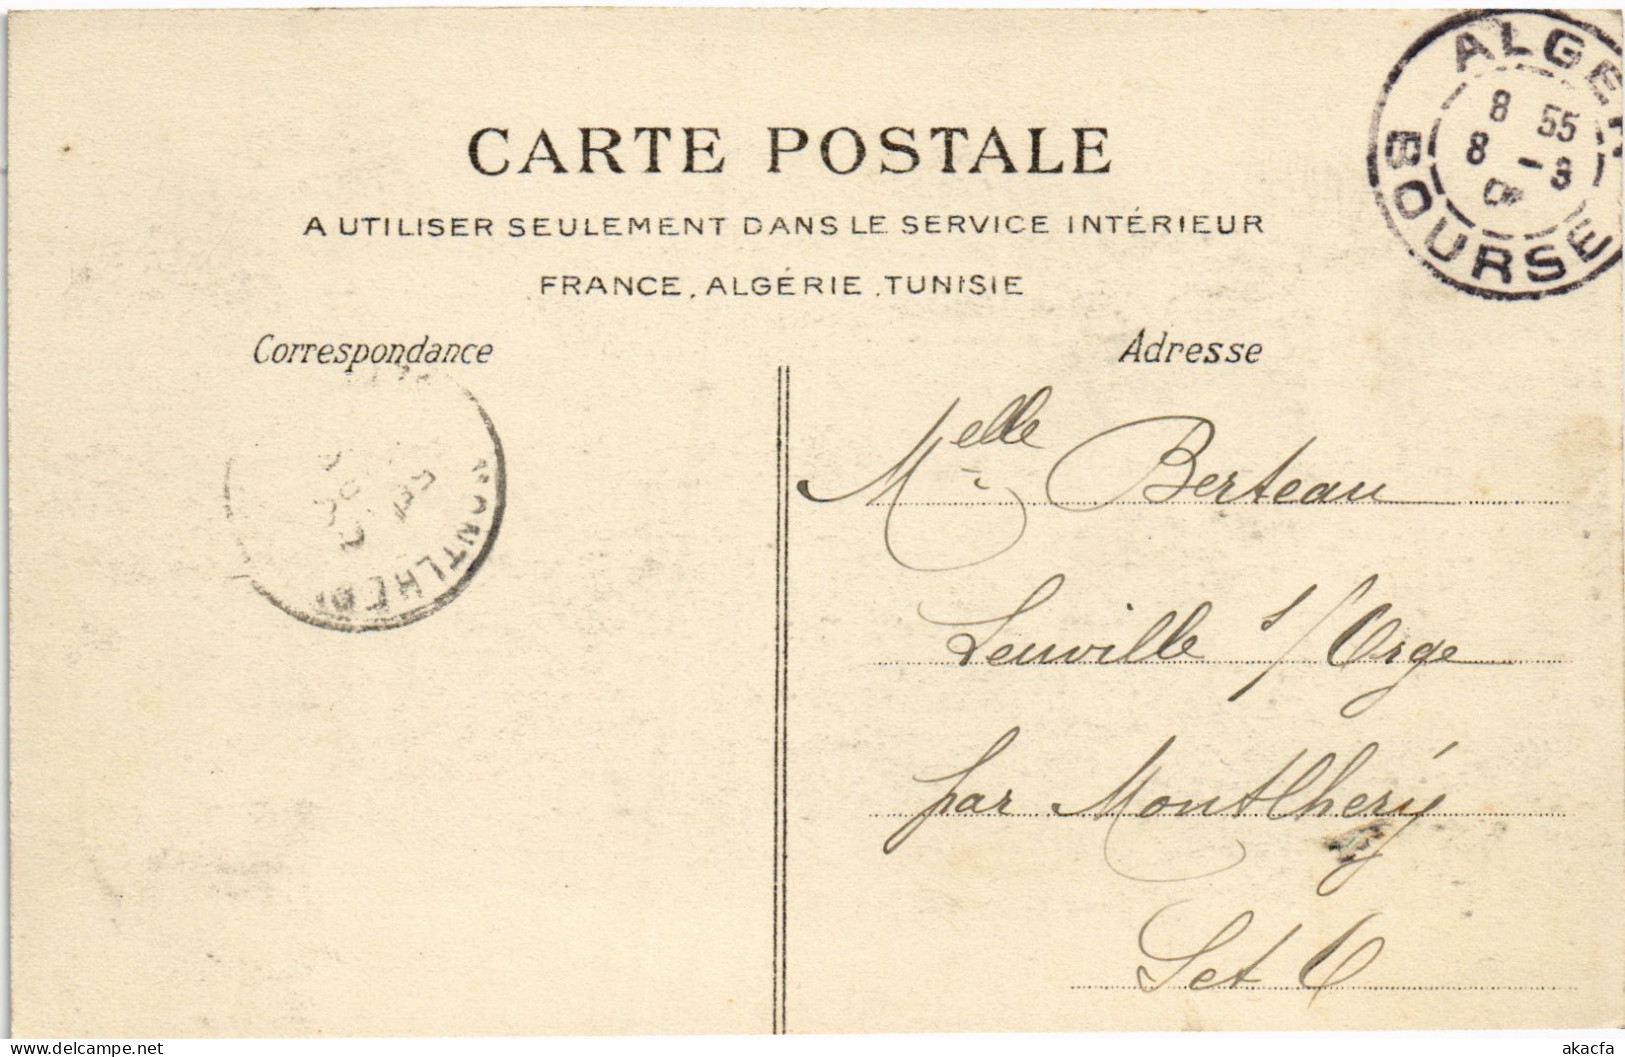 CARTE POSTALE
A UTILISER SEULEMENT DANS LE SERVICE INTÉRIEUR
FRANCE, ALGÉRIE, TUNISIE
ALGER
8 55
8 - 8
BOURSE
Correspondance
Adresse
Melle Berteau
Leuville s/ Orge
par Montlhéry
S et O
akacfa